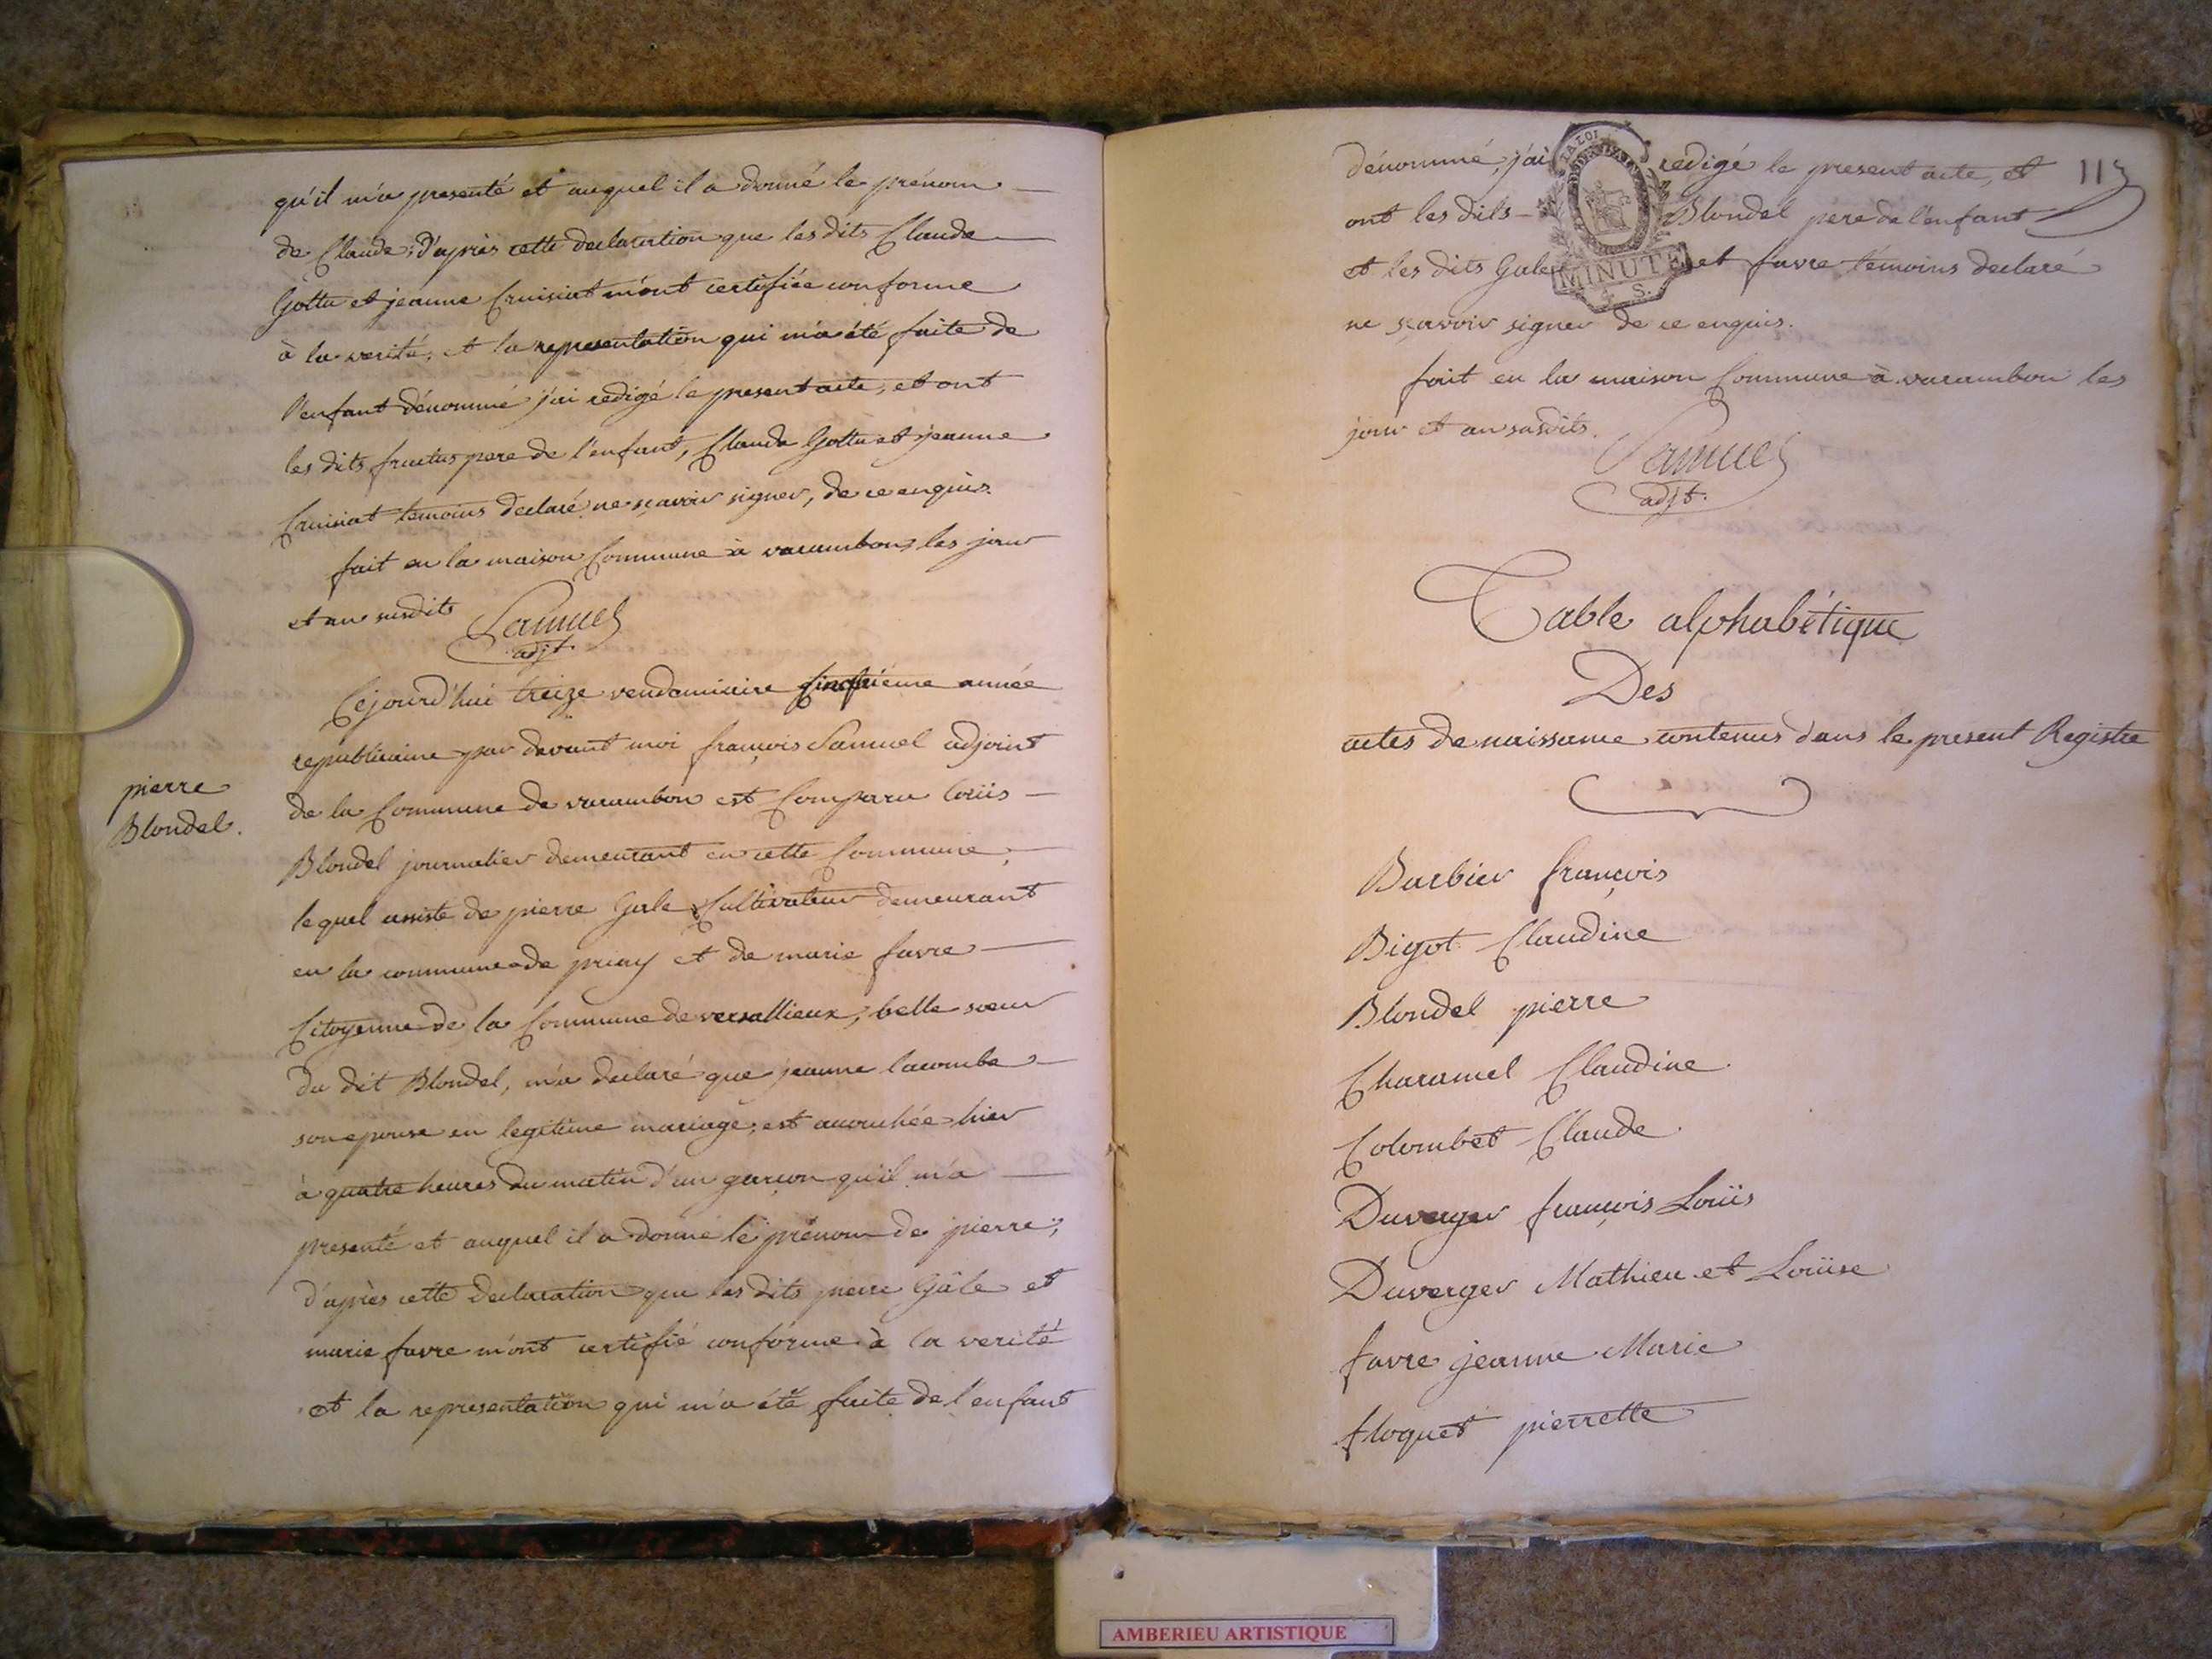 qu'il m'a presenté et auquel il a donné le prénom
de Claude; d'après cette declaration que les dits Claude
Gottu et jeanne Cruisiat m'ont certifiée conforme
à la verité, et la representation qui m'a été faite de
l'enfant dénommé j'ai redigé le present acte, et ont
les dits fructus pere de l'enfant, Claude Gottu et jeanne
Cruisiat temoins declaré ne sçavoir signer, de ce enquis.
fait en la maison Commune à varambon, les jour
et an susdits
Samuel
adjt.
pierre
Blondel.
Cejourd'hui treize vendemiaire cinquiéme année
republicaine par devant moi françois Samuel adjoint
de la Commune de varambon est Comparu loüis
Blondel journalier demeurant en cette Commune,
lequel assisté de pierre Gale Cultivateur demeurant
en la commune de priay et de marie favre
Citoyenne de la Commune de versallieux, belle sœur
du dit Blondel, m'a declaré que jeanne lacombe
son epouse en legitime mariage, est accouchée hier
à quatre heures du matin d'un garçon qu'il m'a
presenté et auquel il a donné le prénom de pierre,
d'après cette declaration que les dits pierre Gâle et
marie favre m'ont certifié conforme à la verité
et la representation qui m'a été faite de l'enfant
dénommé, j'ai redigé le present acte, et
113
ont les dits Blondel pere de l'enfant
et les dits Gale et favre temoins declaré
ne sçavoir signer de ce enquis.
LA LOI
MINUTE
4 S.
fait en la maison Commune à varambon les
jour et an susdits.
Samuel
adjt.
Table alphabétique
Des
actes de naissance contenus dans le present Registre
Barbier françois
Bigot Claudine
Blondel pierre
Charamel Claudine
Colombet Claude
Duverger françois Loüis
Duverger Mathieu et Loüise
favre jeanne Marie
floquet pierrette
AMBERIEU ARTISTIQUE